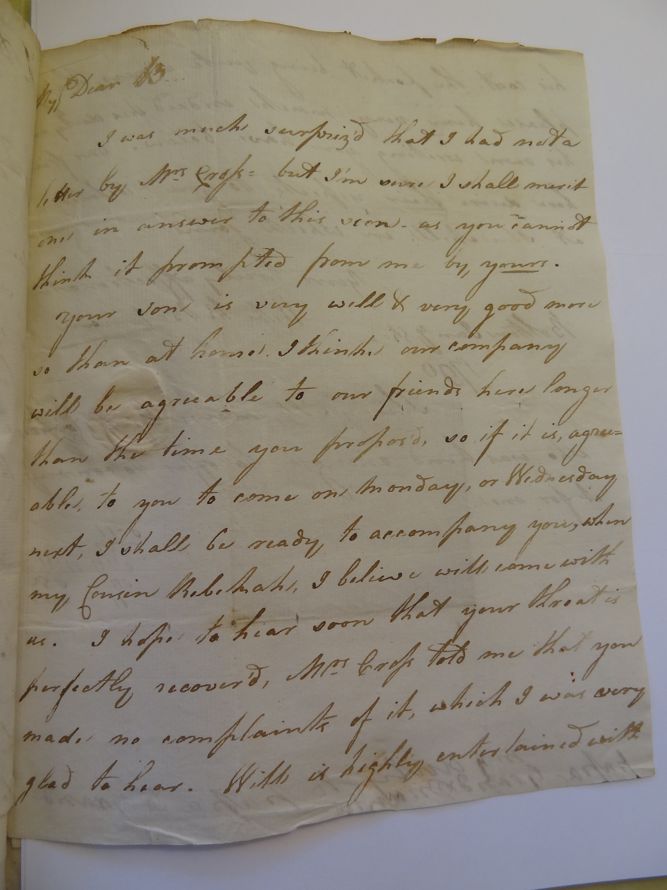 My Dear B
I was much surprized that I had not a
letter by Mrs Cross - but I'm sure I shall merit
one in answer to this soon - as you cannot
think it prompted from me by yours.
Your son is very well & very good more
so than at home. I think our company
will be agreeable to our friends here longer
than the time you propos'd, so if it is, agree=
able, to you to come on Monday, or Wednesday
next, I shall be ready to accompany you, when
my Cousin Rebekah, I believe will come with
us. I hope to hear soon that your throat is
perfectly recover'd, Mrs Cross told me that you
made no complaints of it, which I was very
glad to hear. Will is highly entertained with